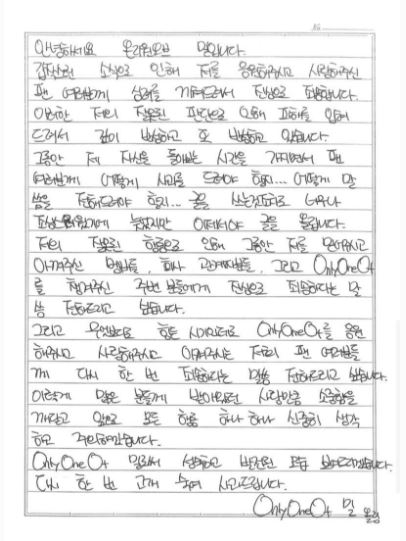 안녕하세요 온리원오브 밀입니다.
갑작스런 소식으로 인해 저를 응원해주시고 사랑해주신
팬 여러분께 상처를 가져드려서 진심으로 죄송합니다.
이러한 저의 잘못된 판단으로 인해 피해를 입혀
드려서 깊이 반성하고 또 반성하고 있습니다.
그동안 제 자신을 돌아보는 시간을 가지면서 팬
여러분께 어떻게 사과를 드려야 할지... 어떻게 말
씀을 전해드려야 할지... 글을 쓰는 너무나
조심 늦었지만 이제서야 글을 올립니다.
저의 잘못된 행동으로 인해 그동안 저를 믿어주시고
아껴주신 멤버들, 회사 관계자분들, 그리고 OnlyOneOf
를 챙겨주신 주변 분들에게 진심으로 죄송하다는 말
씀 전해드리고 싶습니다.
그리고 무엇보다도 힘든 시기인데도 OnlyOneOf를 응원
해주시고 사랑해주시고 아껴주시는 저희 팬 여러분들
께 다시 한 번 죄송하다는 말씀 전해드리고 싶습니다.
이렇게 많은 분들께 받아왔던 사랑만큼 소중함을
깨닫고 앞으로 모든 행동 하나 하나 신중히 생각
하고 주의하겠습니다.
OnlyOneOf 밀로서 성숙하고 발전된 모습 보여드리겠습니다.
다시 한 번 고개 숙여 사과드립니다.
OnlyOneOf 밀 올림